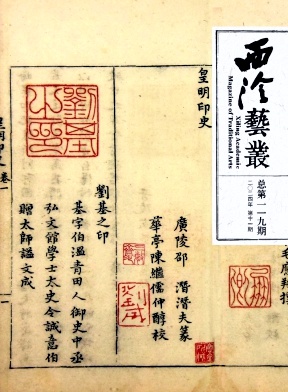 西泠藝叢
Xiling Academic
Magazine of Traditional Arts
总第一一九期
二〇二四年 第十一期
皇明印史
廣陵邵潛潛夫篆
華亭陳繼儒仲醇校
劉基之印
劉基之印
基字伯溫青田人御史中丞
弘文館學士太史令誠意伯
贈太師謚文成
皇明印史卷一